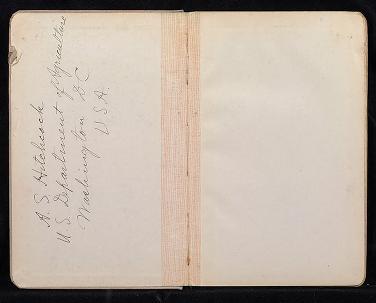 A. S. Hitchcock
U S Department of Agriculture
Washington D C
U S A.